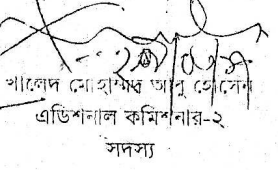 খালেদ মোহাম্মদ আবু হোসেন
এডিশনাল কমিশনার-২
সদস্য